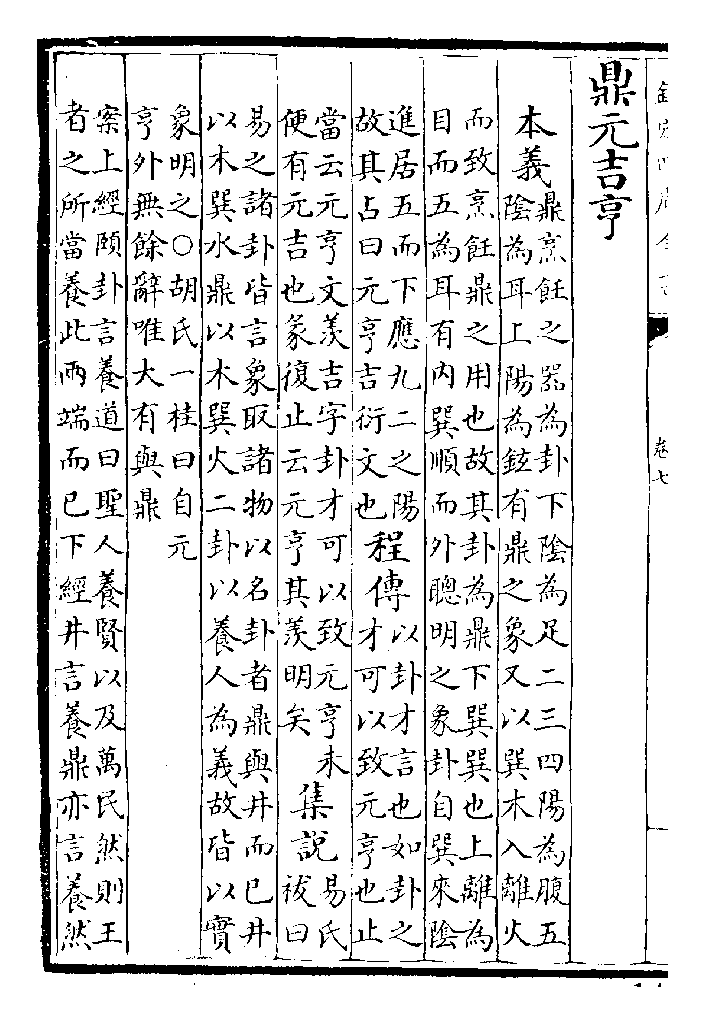 欽定四庫全書
卷七
鼎元吉亨
本義鼎烹飪之器為卦下陰為足二三四陽為腹五
陰為耳上陽為鉉有鼎之象又以巽木入離火
而致烹飪鼎之用也故其卦為鼎下巽巽也上離為
目而五為耳有内巽順而外聰明之象卦自巽來陰
進居五而下應九二之陽
故其占曰元亨吉衍文也
程傳以卦才言也如卦之
才可以致元亨也止
當云元亨文羨吉字卦才可以致元亨未
便有元吉也彖復止云元亨其羨明矣
集說易氏
祓曰
易之諸卦皆言象取諸物以名卦者鼎與井而已井
以木巽水鼎以木巽火二卦以養人為義故皆以實
象明之○胡氏一桂曰自元
亨外無餘辭唯大有與鼎
案上經頤卦言養道曰聖人養賢以及萬民然則王
者之所當養此兩端而已下經井言養鼎亦言養然